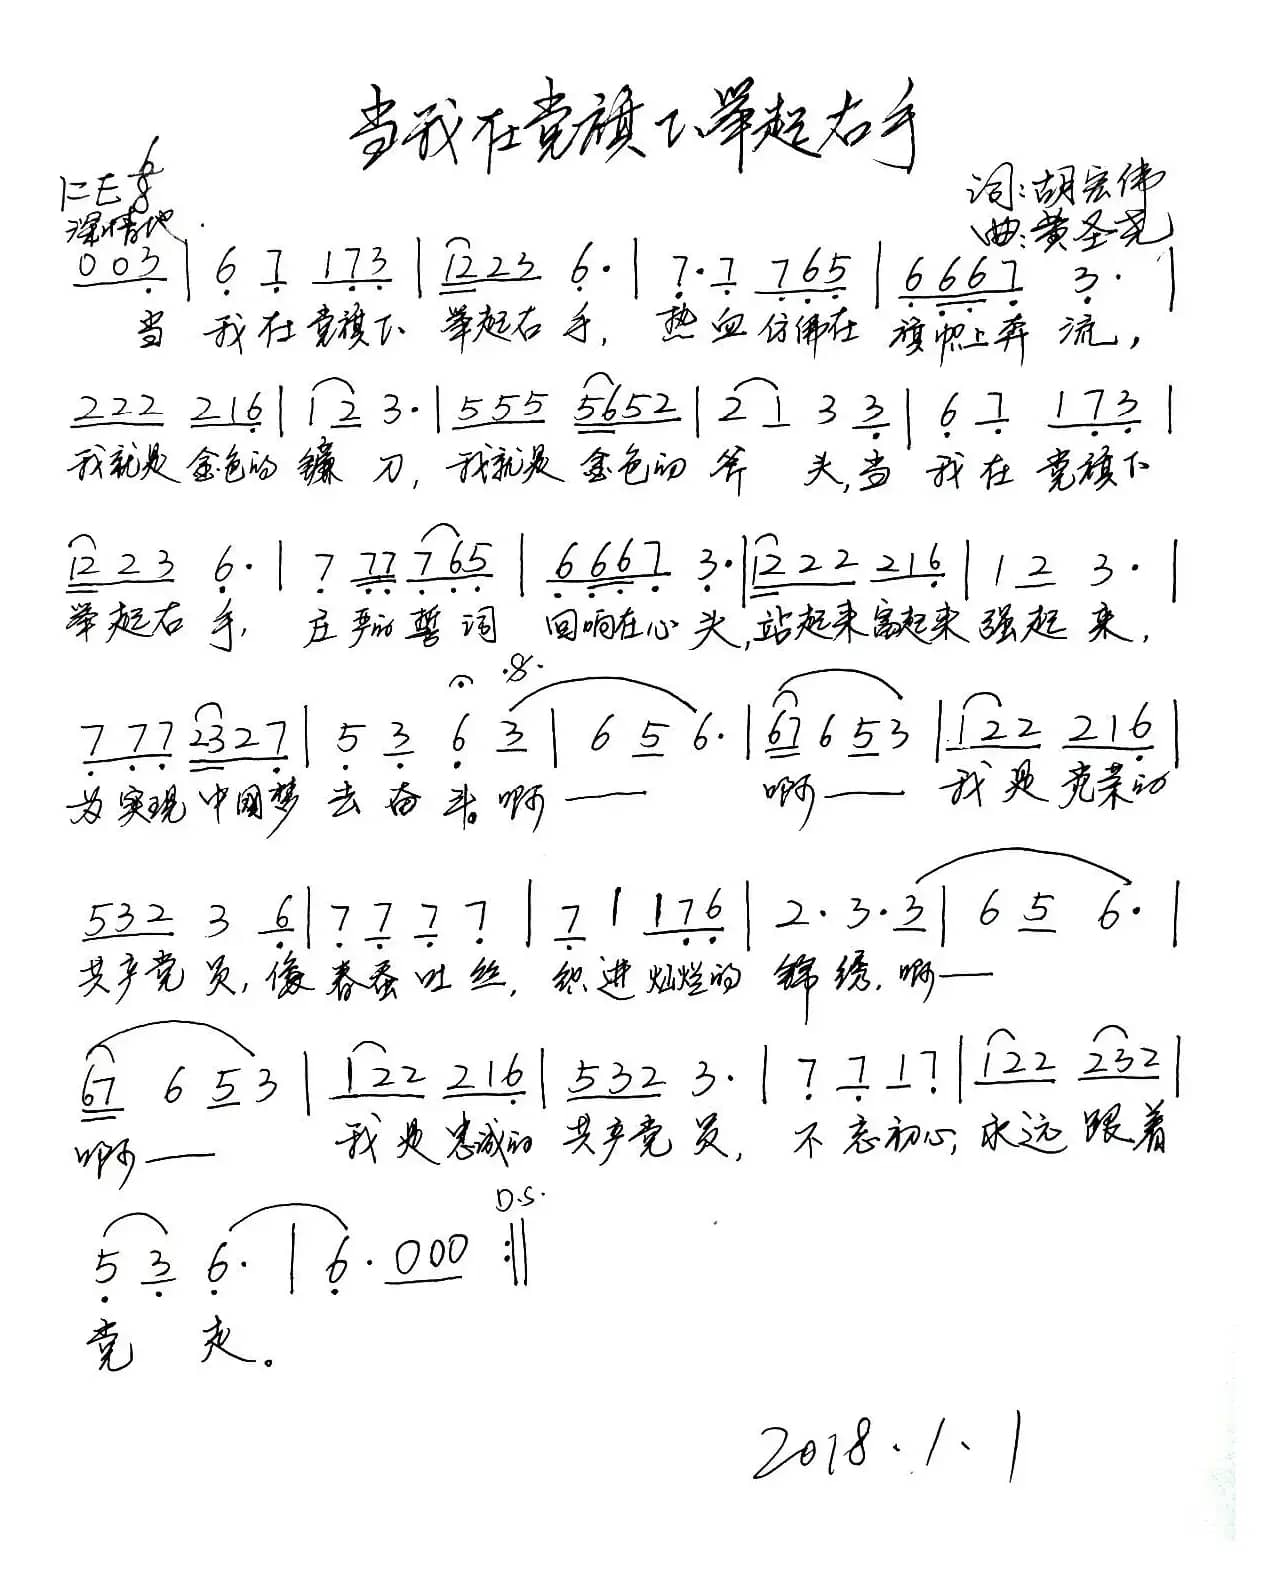 当我在党旗下举起右手
1=E 6/8
词:胡宏伟
深情地
曲:黄圣尧
003 | 6 7 173 | 1223 6· | 7·7 765 | 6667 3· |
当 我在党旗下 举起右手, 热血仿佛在 旗帜上奔流,
222 216 | 12 3· | 555 5652 | 21 3 3 | 6 7 173 |
我就是 金色的 镰刀, 我就是 金色的 斧头,当 我在 党旗下
1223 6· | 7 77 765 | 6667 3· | 12222 216 | 12 3· |
举起右手, 庄严的誓词 回响在心头,站起来富起来强起来,
777 2327 | 5 3 6 3 | 6 5 6· | 67653 | 122 216 |
为实现 中国梦 去奋斗。啊—— 啊—— 我是光荣的
532 3 6 | 7 7 7 7 | 7 1 176 | 2·3·3 | 6 5 6· |
共产党员,像春蚕吐丝,织进灿烂的锦绣.啊——
67 6 5 3 | 122 216 | 532 3· | 7 7 17 | 122 232 |
啊—— 我是忠诚的 共产党员, 不忘初心,永远跟着
D.S.
5 3 6· | 6· 000 :||
党 走。
2018.1.1